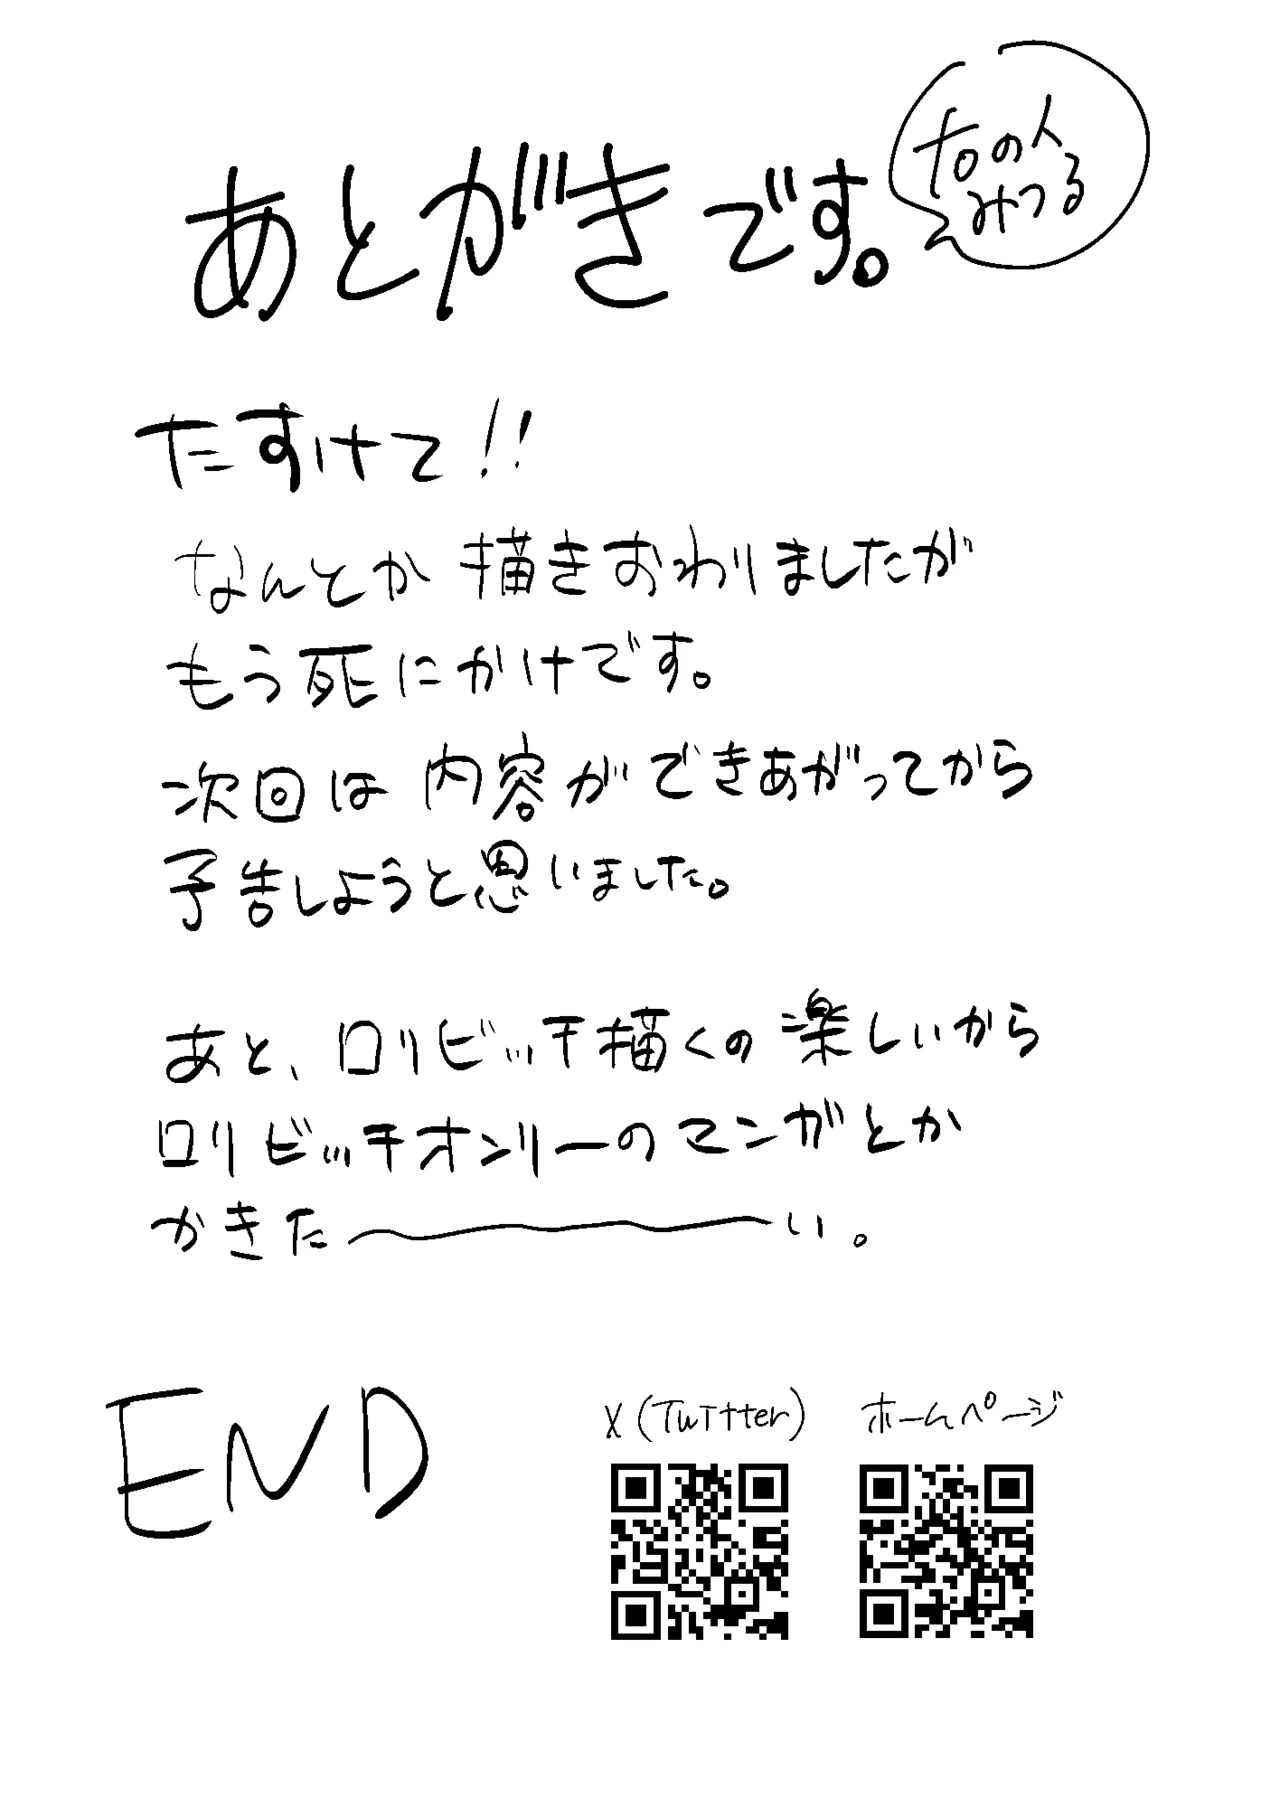 あとがきです。
の人
みつる
たすけて!!
なんとか描きおわりましたが
もう死にかけです。
次回は内容ができあがってから
予告しようと思いました。
あと、ロリビッチ描くの楽しいから
ロリビッチオンリーのマンガとか
かきた〜い。
END
X (Twitter)
ホームページ